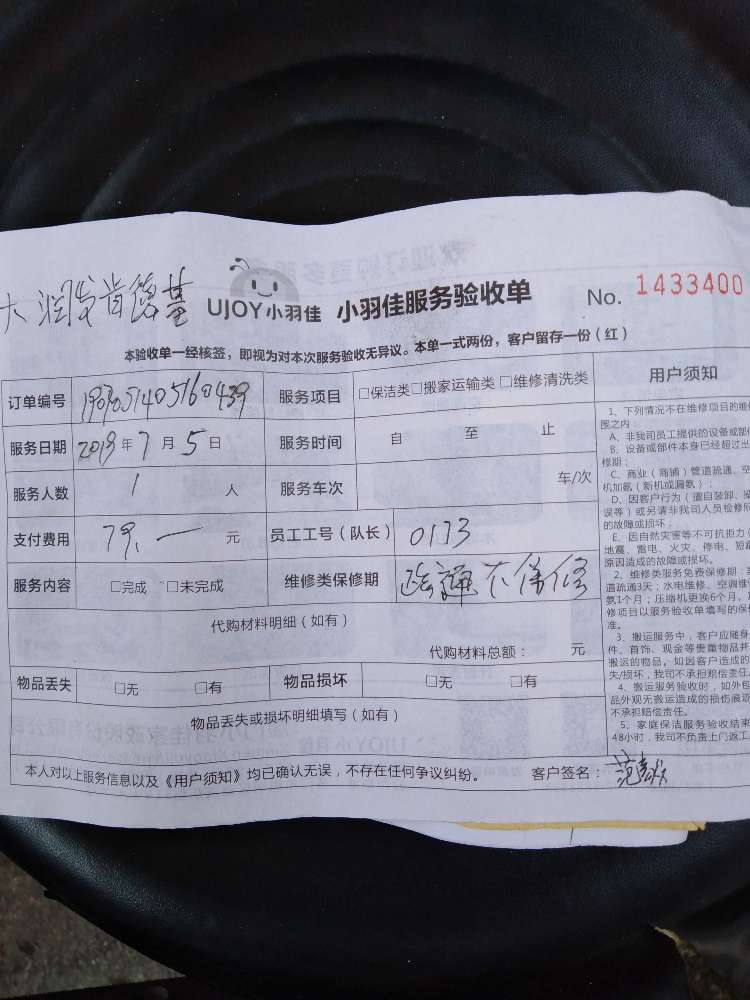 大润发肯德基
UJOY小羽佳 小羽佳服务验收单 No. 1433400
本验收单一经核签，即视为对本次服务验收无异议。本单一式两份，客户留存一份（红）
订单编号 服务项目 □保洁类 □搬家运输类 □维修清洗类
服务日期 2019年7月5日 服务时间 自 至 止
服务人数 1 人 服务车次 车/次
支付费用 79.一 元 员工工号（队长） 0173
服务内容 □完成 □未完成 维修类保修期 疏通不保修
代购材料明细（如有）
代购材料总额： 元
物品丢失 □无 □有 物品损坏 □无 □有
物品丢失或损坏明细填写（如有）
本人对以上服务信息以及《用户须知》均已确认无误，不存在任何争议纠纷。 客户签名：
用户须知
1、下列情况不在维修项目的维
围之内：
A、非我司员工提供的设备或部
B、设备或部件本身已经超过出
修期；
C、商业（商铺）管道疏通、空
机加氨（新机或漏氨）；
D、因客户行为（擅自装卸、
误等）或另请非我司人员检修
的故障或损坏；
E、因自然灾害等不可抗拒力（
地震、雷电、火灾、停电、短
原因造成的故障或损坏。
2、维修类服务免费保修期：
道疏通3天；水电维修、空调维
氨1个月；压缩机更换6个月、
修项目以服务验收单填写的保
准。
3、搬运服务中，客户应随身
件、首饰、现金等贵重物品并
搬运的物品，如因客户造成的
失/损坏，我司不承担赔偿责任。
4、搬运服务验收时，如外包
品外观无搬运造成的损伤痕迹
不承担赔偿责任。
5、家庭保洁服务验收结束
48小时，我司不负责上门返工